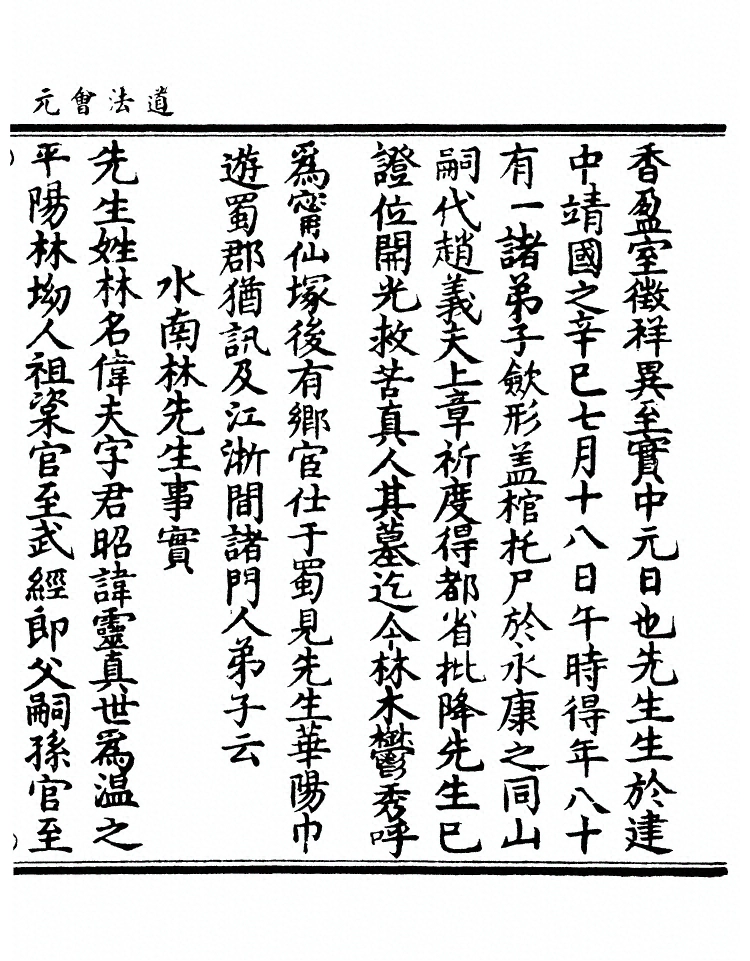 道法會元
香盈室徵祥異至實中元日也先生生於建
中靖國之辛巳七月十八日午時得年八十
有一諸弟子歛形盖棺托尸於永康之同山
嗣代趙義夫上章祈度得都省批降先生已
證位開光救苦真人其墓迄今林木鬱秀呼
爲甯仙塚後有鄉宦仕于蜀見先生華陽巾
遊蜀郡猶訊及江淅間諸門人弟子云
水南林先生事實
先生姓林名偉夫字君昭諱靈真世爲温之
平陽林坳人祖楶官至武經郎父嗣孫官至